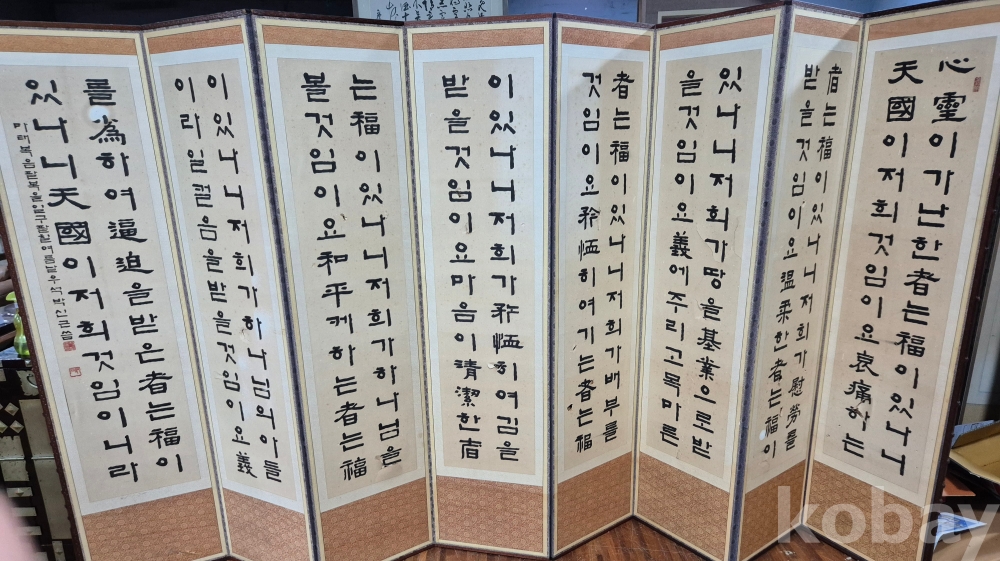 心靈이가난한者는福이있나니
天國이저희것임이요哀痛하는
者는福이있나니저희가慰勞를
받을것임이요溫柔한者는福이
있나니저희가땅을基業으로받
을것임이요義에주리고목마른
者는福이있나니저희가배부를
것임이요矜恤히여기는者는福
이있나니저희가矜恤히여김을
받을것임이요마음이淸潔한者
는福이있나니저희가하나님을
볼것임이요和平케하는者는福
이있나니저희가하나님의아들
이라일컬음을받을것임이요義
를爲하여逼迫을받은者는福이
있나니天國이저희것임이니라
마태복음팔복을일구팔
kobay